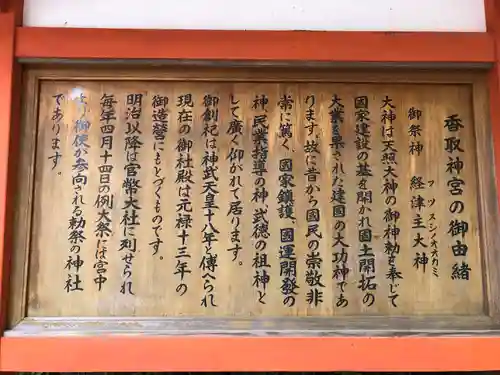 香取神宮の御由緒
フツヌシノオオカミ
御祭神 経津主大神
大神は天照大神の御神勅を奉じて
国家建設の基を開かれ國土開拓の
大業を果された建国の大功神であ
ります。故に昔から國民の崇敬非
常に篤く、國家鎮護、國運開發の
神、民業指導の神、武徳の祖神と
して廣く仰がれて居ります。
御創祀は神武天皇十八年と傳へられ
現在の御社殿は元禄十三年の
御造營にもとづくものです。
明治以降は官幣大社に列せられ
毎年四月十四日の例大祭には宮中
より御使が参向される勅祭の神社
であります。